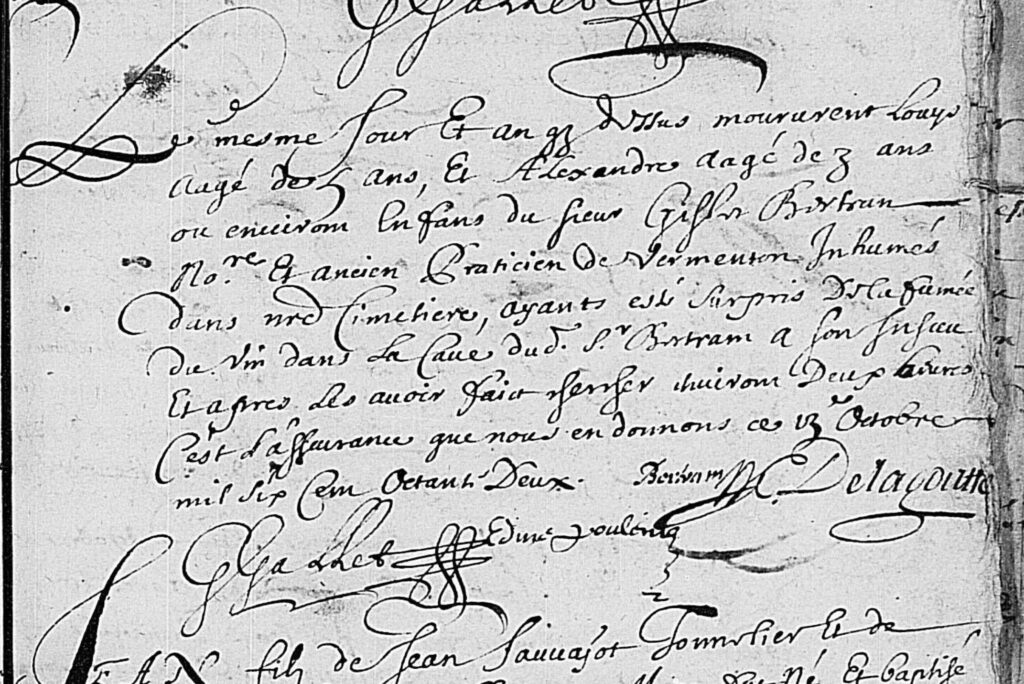 Le mesme Jour Et an q3 dessus moururent Louys
aagé de 5 ans, Et Alexandre aagé de 3 ans
ou environ Enfans du sieur Gislr Bertran
No.re Et ancien Praticien de Vermenton Inhumés
dans nre Cimetiere, ayants esté surpris De la fumée
du vin dans La Cave dud. Sr Bertram a son Insceu
Et apres Les avoir faict chercher environ Deux heures
C'est L'assurance que nous en donnons ce 13e Octobre
mil six Cem Octante Deux. Bertram C. Delagoutte
Edme
fils de Jean Sauvajot Tonnelier Et de
Né Et baptisé